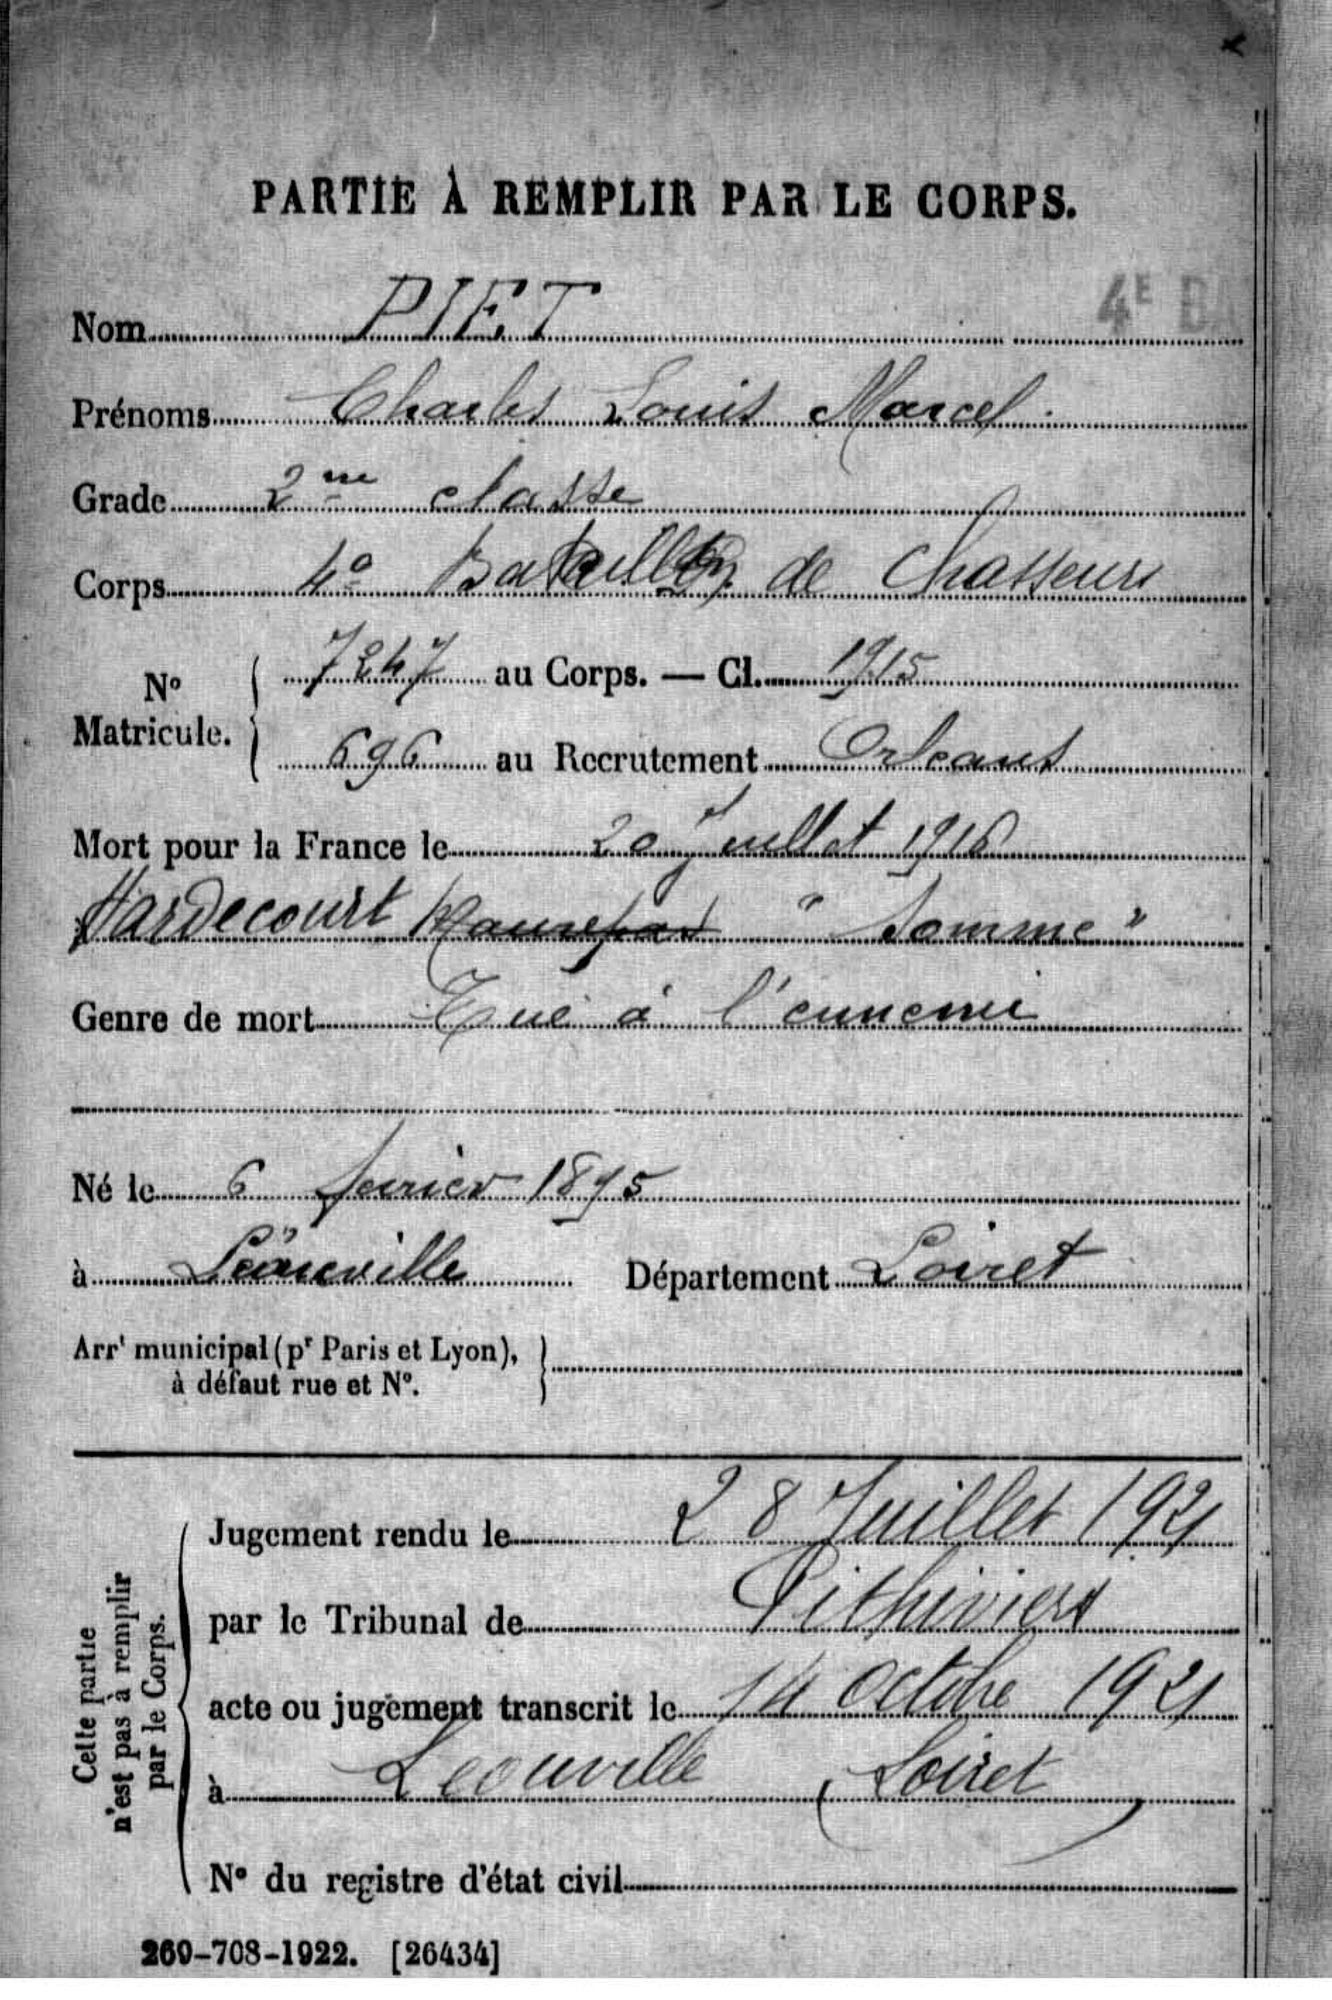 PARTIE À REMPLIR PAR LE CORPS.
4E BA
Nom PIET
Prénoms Charles Louis Marcel.
Grade 2me classe
Corps 4e Bataillon de Chasseurs
No Matricule. { 7247 au Corps. — Cl. 1915
696 au Recrutement Orleans
Mort pour la France le 20 Juillet 1916
Hardecourt Maurepas " Somme "
Genre de mort Tué à l'ennemi
Né le 6 fevrier 1895
à Léouville Département Loiret
Arrt municipal (pr Paris et Lyon), }
à défaut rue et No.
Cette partie
n'est pas à remplir
par le Corps.
Jugement rendu le 28 Juillet 1921
par le Tribunal de Pithiviers
acte ou jugement transcrit le 14 octobre 1921
à Leouville (Loiret)
No du registre d'état civil
269-708-1922. [26434]